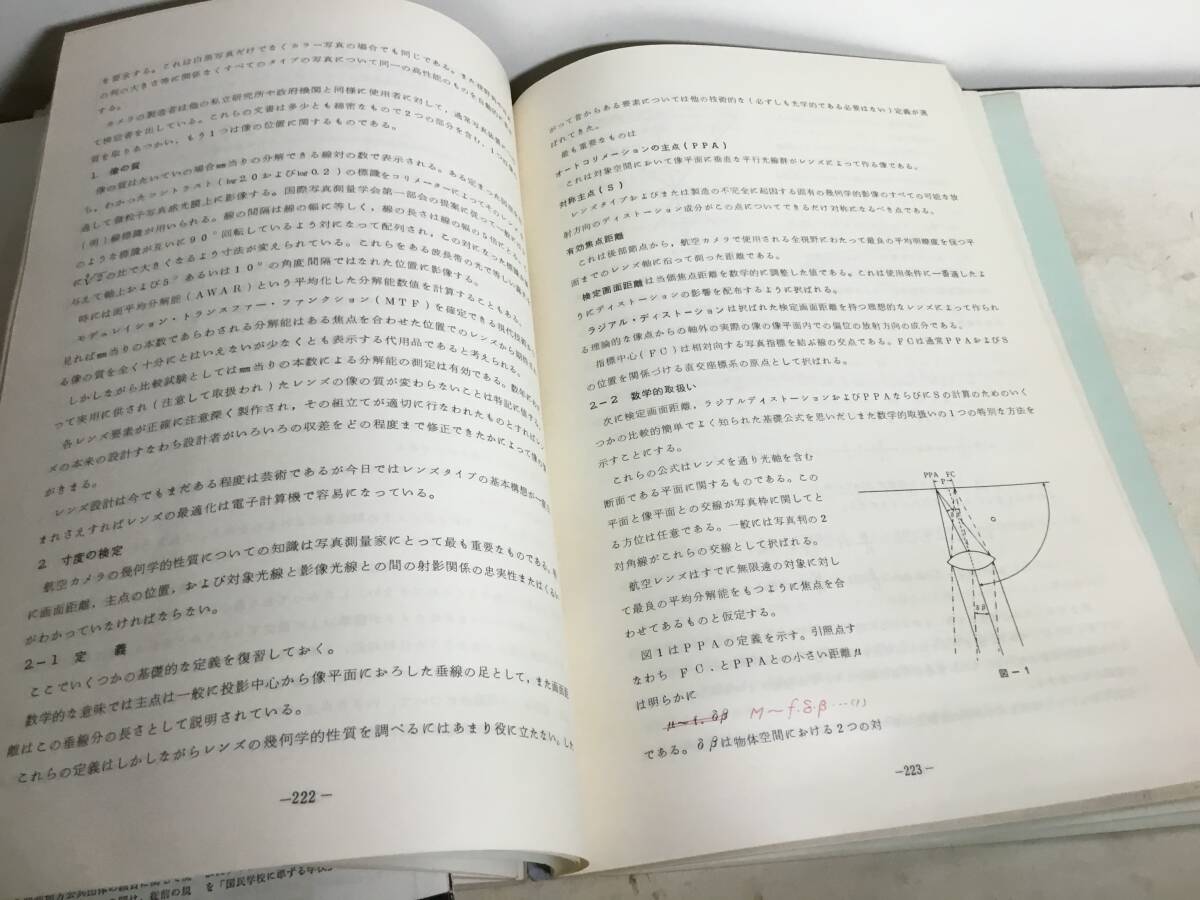 を要求する。これは白黒写真だけでなくカラー写真の場合でも同じである。また
の判の大きさ等に関係なくすべてのタイプの写真について同一の高性能のものを自動的に
する。
カメラの製造者は他の私立研究所や政府機関と同様に使用者に対して，通常写真装置の
て検定書を出している。これらの文書は多少とも綿密なもので2つの部分を含む，1つは
質を取りあつかい，もう1つは像の位置に関するものである。
1. 像の質
像の質はたいていの場合㎜当りの分解できる線対の数で表示される。ある定まった
ち，わかったコントラスト(log 2.0 および log 0.2)の標識をコリメーターによってそのレンズを
通して微粒子写真感光膜上に影像する。国際写真測量学会第一部会の提案に従って一般に
(明)線標識が用いられる。線の間隔は線の幅に等しく，線の長さは線の幅の5倍に
のような標識が互いに90°回転しているよう対になって配列され，この対になった標識が
の比で大きくなるよう寸法が変えられている。これらをある波長帯の光で等しい
与えて軸上および5°あるいは10°の角度間隔ではなれた位置に影像する。
時には面平均分解能(AWAR)という平均化した分解能数値を計算することもある。
モデュレイション・トランスファー・ファンクション(MTF)を確定できる現代技術から
見れば㎜当りの本数であらわされる分解能はある焦点を合わせた位置でのレンズから期待
る像の質を全く十分にとはいえないが少なくとも表示する代用品であると考えられる。
しかしながら比較試験としては㎜当りの本数による分解能の測定は有効である。数年に
って実用に供され(注意して取扱われ)たレンズの像の質が変わらないことは特記に値する。
各レンズ要素が正確に注意深く製作され，その組立てが適切に行なわれたものとすればレン
ズの本来の設計すなわち設計者がいろいろの収差をどの程度まで修正できたかによって像の
がきまる。
レンズ設計は今でもまだある程度は芸術であるが今日ではレンズタイプの基本構想が一
まれさえすればレンズの最適化は電子計算機で容易になっている。
2 寸度の検定
航空カメラの幾何学的性質についての知識は写真測量家にとって最も重要なものである。
に画面距離，主点の位置，および対象光線と影像光線との間の射影関係の忠実性またはくるい
がわかっていなければならない。
2-1 定 義
ここでいくつかの基礎的な定義を復習しておく。
数学的な意味では主点は一般に投影中心から像平面におろした垂線の足として，また画面距
離はこの垂線分の長さとして説明されている。
これらの定義はしかしながらレンズの幾何学的性質を調べるにはあまり役に立たない。した
—222—
がって昔からある要素については他の技術的な(必ずしも光学的である必要はない)定義が選
ばれてきた。
最も重要なものは
オートコリメーションの主点(PPA)
これは対象空間において像平面に垂直な平行光線群がレンズによって作る像である。
対称主点(S)
レンズタイプおよびまたは製造の不完全に起因する固有の幾何学的影像のすべての可能な放
射方向のディストーション成分がこの点についてできるだけ対称になるべき点である。
有効焦点距離
これは後部節点から，航空カメラで使用される全視野にわたって最良の平均明瞭度を保つ平
面までのレンズ軸に沿って伺った距離である。
検定画面距離は当価焦点距離を数学的に調整した値である。これは使用条件に一番適したよ
りにディストーションの影響を配布するように択ばれる。
ラジアル・ディストーションは択ばれた検定画面距離を持つ思想的なレンズによって作られ
る理論的な像点からの軸外の実際の像の像平面内での偏位の放射方向の成分である。
指標中心(FC)は相対向する写真指標を結ぶ線の交点である。FCは通常PPAおよびS
の位置を関係づける直交座標系の原点として択ばれる。
2-2 数学的取扱い
次に検定画面距離，ラジアルディストーションおよびPPAならびにSの計算のためのいく
つかの比較的簡単でよく知られた基礎公式を思いだしまた数学的取扱いの1つの特別な方法を
示すことにする。
これらの公式はレンズを通り光軸を含む
断面である平面に関するものである。この
平面と像平面との交線が写真枠に関してと
る方位は任意である。一般には写真判の2
対角線がこれらの交線として択ばれる。
航空レンズはすでに無限遠の対象に対し
て最良の平均分解能をもつように焦点を合
わせてあるものと仮定する。
図1はPPAの定義を示す。引照点す
なわち FC、とPPAとの小さい距離μ
は明らかに
μ~f. δβ M~f.δ.β…(1)
である。δβは物体空間における2つの対
PPA FC
P
δβ
図-1
—223—
を「国民学校に準ずる学校」